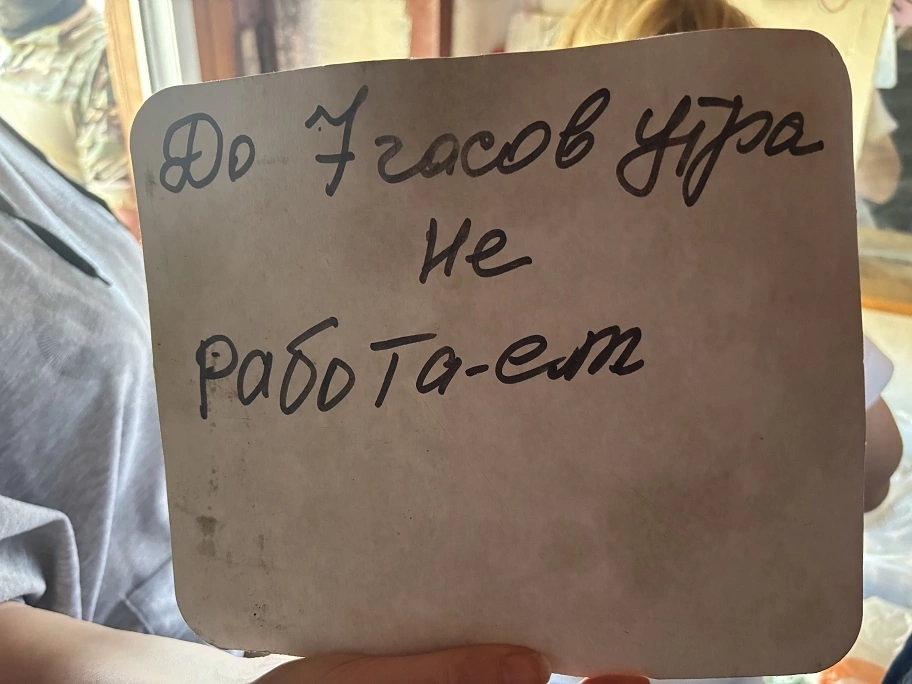 До 7 часов утра
не
работа-ем